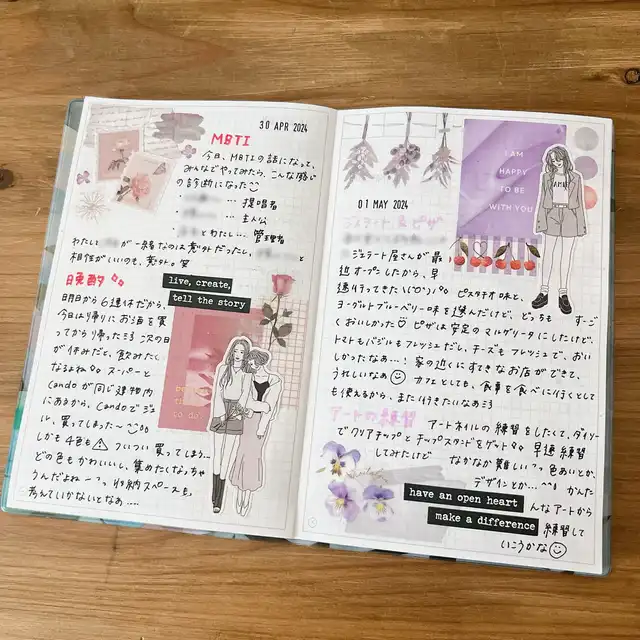 30 APR 2024
MBTI
今日、MBTIの話になって、
みんなでやってみたら、こんな感じ
の診断になった
・ … 提唱者
・ … 主人公
・ とわたし… 管理者
わたしと が一緒なのは意外だったし、 と
相性がいいのも、意外。笑
晩酌
明日から6連休だから、
今日は帰りにお酒を買
ってから帰った 次の日
が休みだと、飲みたく
なるよね スーパーと
Candoが同じ建物内
にあるから、Candoでジェ
ル、買ってしまった〜
しかも4色も ついつい買ってしまう…
どの色もかわいいし、集めたくなっちゃ
うんだよねー 収納スペースも、
考えていかないとなぁ….
live, create,
tell the story
01 MAY 2024
ジェラート&ピザ
ジェラート屋さんが最
近オープンしたから、早
速行ってきた ピスタチオ味と、
ヨーグルトブルーベリー味を選んだけど、どっちも すーご
くおいしかった♡ ピザは安定のマルゲリータにしたけど、
トマトもバジルもフレッシュだし、チーズもフレッシュで、おい
しかったなぁ…! 家の近くにすてきなお店ができて、
うれしいなぁ カフェとしても、食事を食べに行くとして
も使えるから、また行きたいなぁ
I AM
HAPPY
TO BE
WITH YOU
アートの練習
アートネイルの練習をしたくて、ダイソー
でクリアチップとチップスタンドをゲット 早速練習
してみたけど なかなか難しい 色あいとか、
デザインとか… かんた
んなアートから
練習して
いこうかな
have an open heart
make a difference